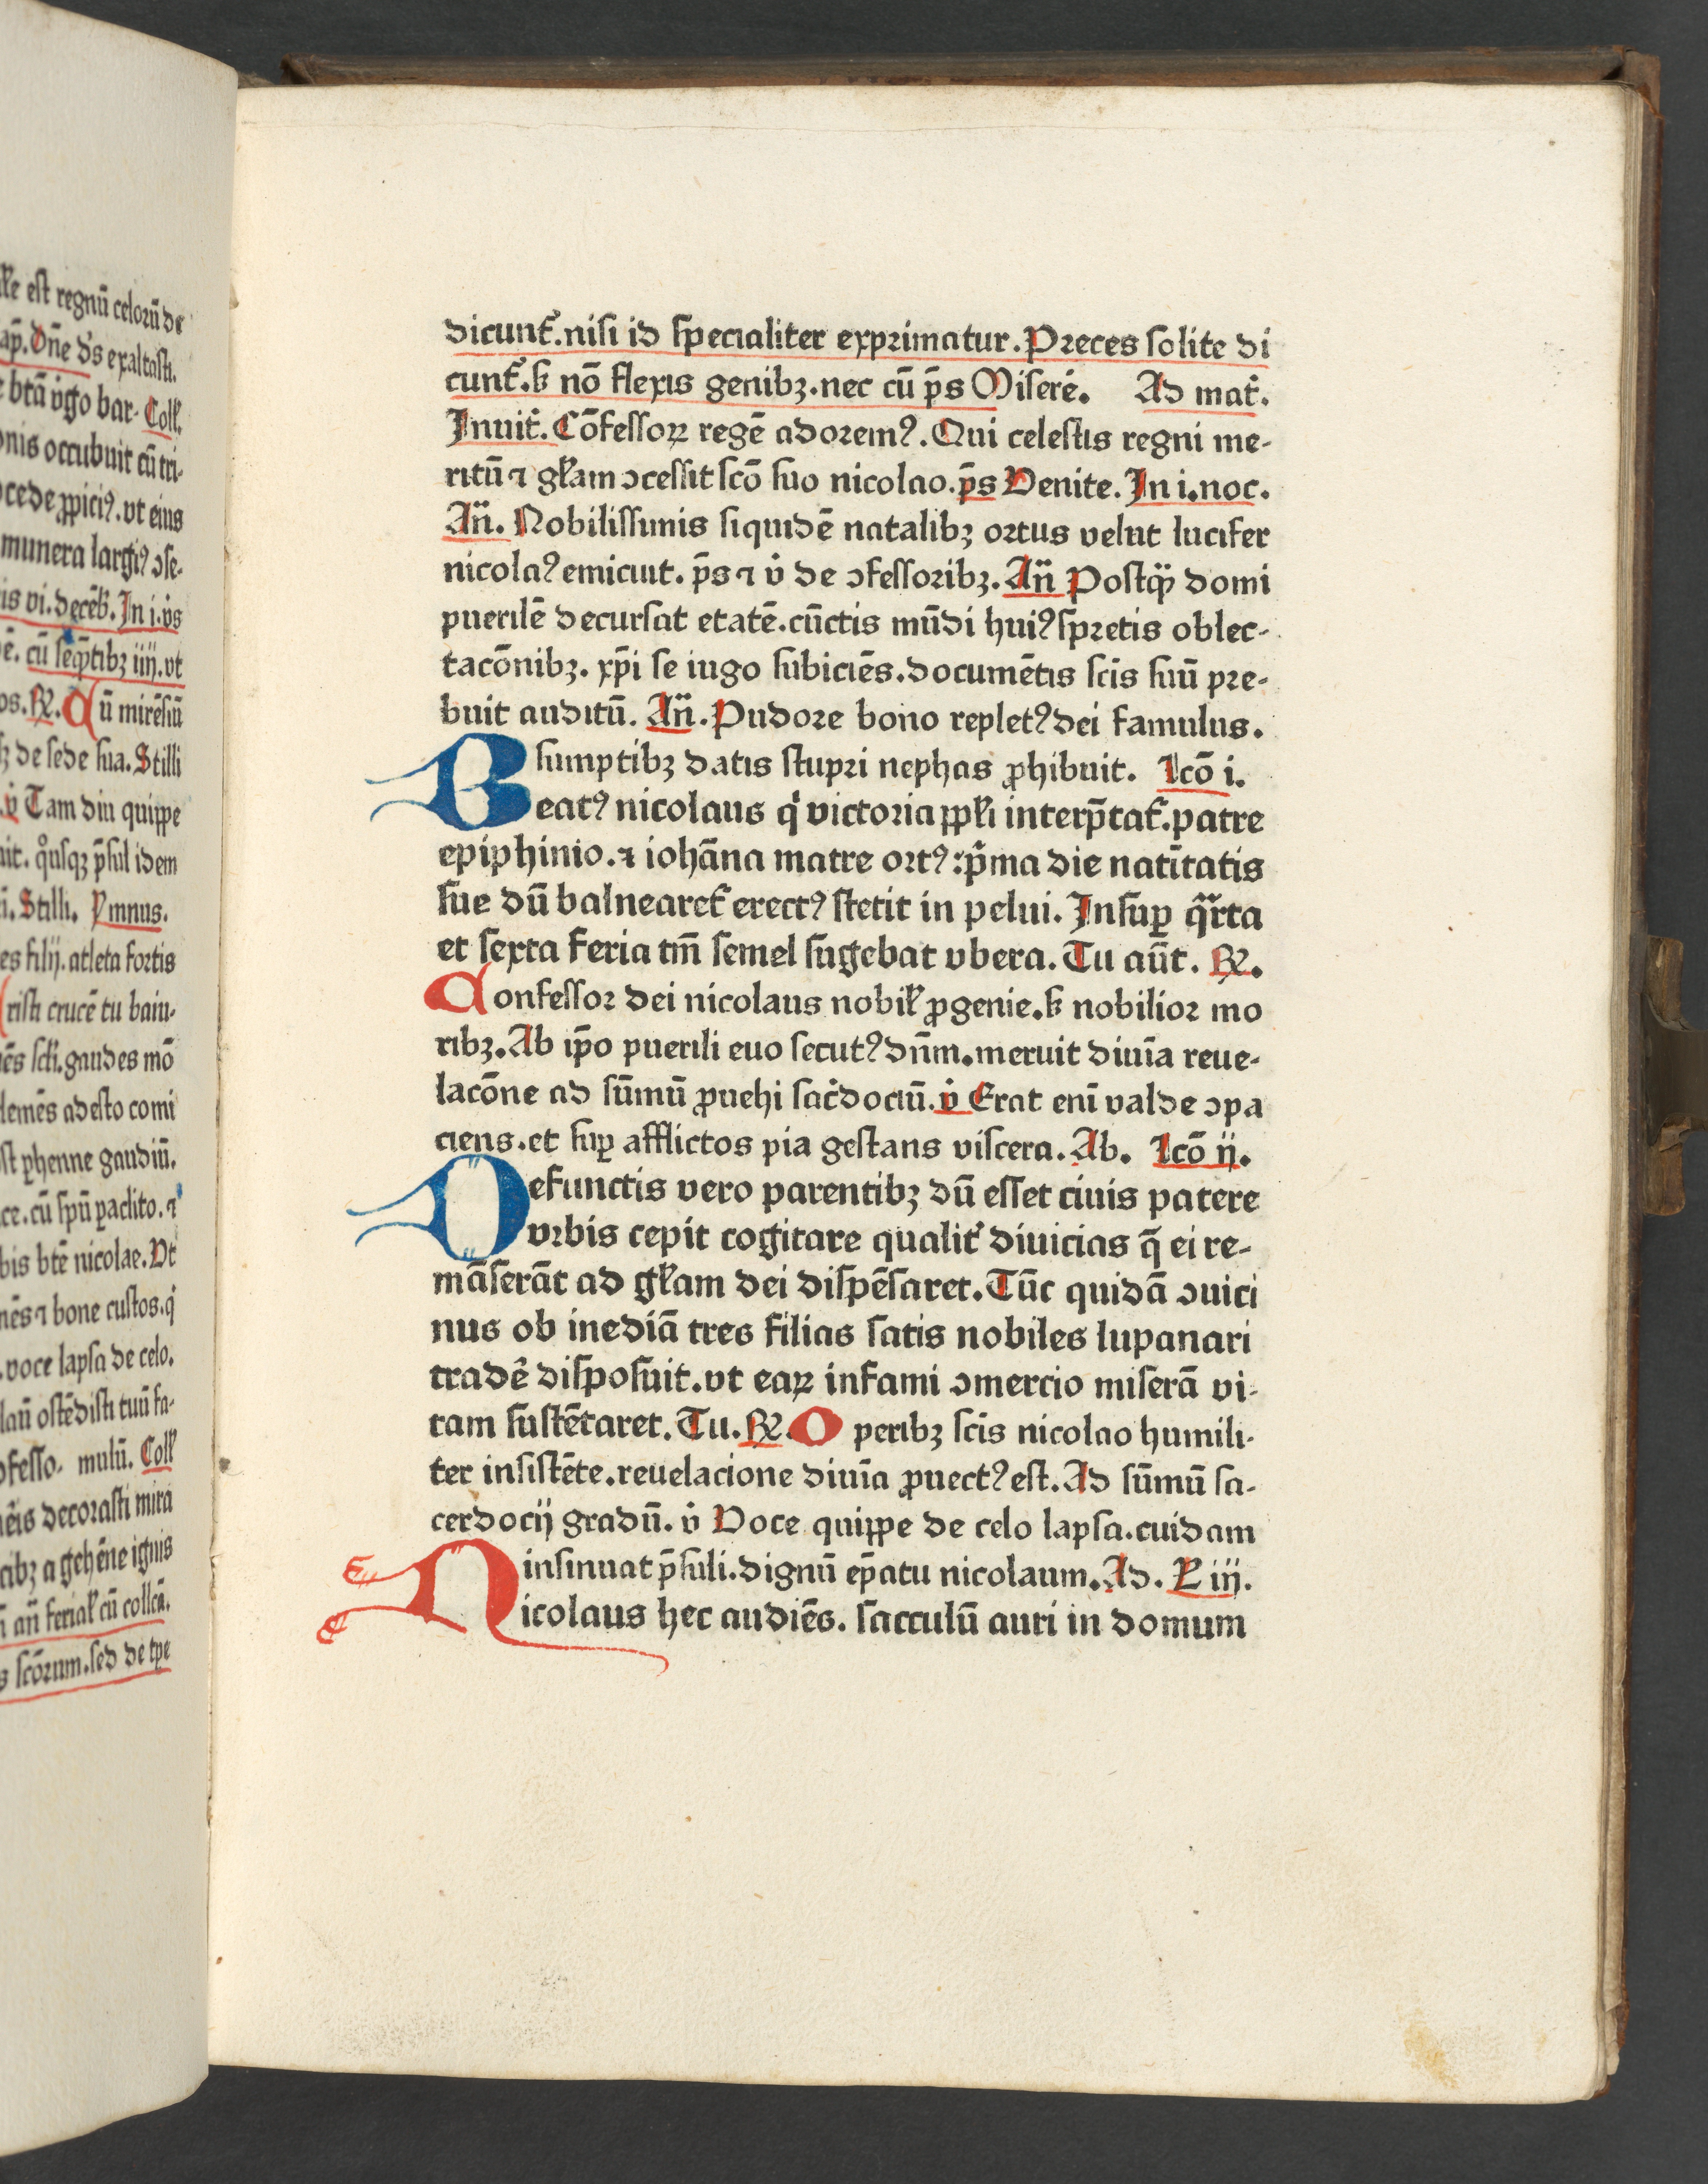 ıl̄e est regnū celorū de
ap̄. Dn̄e ds̄ exaltasti.
e btā v̄go bar. Coll̄.
onis occubuit cū tri-
ocede ꝓpiciꝰ. vt eius
munera largiꝰ ↄse-
is vi. decēb̄. In i. v̄s
ē. cū seq̄ntibꝫ iiij. vt
os. ℞. Cū mirēsiū
ꝫ de sede sua. Stilli
v̄ Tam diu quippe
uit. qͦusqꝫ p̄sul idem
i. Stilli. Ymnus.
es filij. atleta fortis
risti crucē tu baiu-
iēs scl̄i. gaudes mō
lemēs adesto comi
st ꝑhenne gaudiū.
ce. cū spū ꝑaclito. ⁊
bis btē nicolae. Vt
nēs ⁊ bone custos. qi
. voce lapsa de celo.
laū ostēdisti tuū fa-
ofesso- mulū. Coll̄
iēis decorasti mira
cibꝫ a gehēne ignis
ī an̄ ferial̄ cū collcā.
s scōrum. sed de tpe
dicunt̄. nisi id specialiter exprimatur. Preces solite di
cunt̄. ꝭ nō flexis genibꝫ. nec cū p̄s Miserē. Ad mat̄.
Inuit̄. Cōfessoꝝ regē adoremꝰ. Qui celestis regni me-
ritū ⁊ gl̄am ↄcessit scō suo nicolao. p̄s Venite. In i. noc.
An̄. Nobilissimis siquidē natalibꝫ ortus velut lucifer
nicolaꝰ emicuit. p̄s ⁊ v̄ de ↄfessoribꝫ. An̄ Postqͣꝫ domi
puerilē decursat etatē. cūctis mūdi huiꝰ spretis oblec-
tacōnibꝫ. xp̄i se iugo subiciēs. documētis scīs suū pre-
buit auditū. An̄. Pudore bono repletꝰ dei famulus.
sumptibꝫ datis stupri nephas ꝓhibuit. Lcō i.
Beatꝰ nicolaus qi victoria ppl̄i interp̄tat̄. patre
epiphinio. ⁊ iohāna matre ortꝰ: pͥma die natiītatis
sue dū balnearet̄ erectꝰ stetit in pelui. Insuꝑ qͣrta
et sexta feria tm̄ semel sugebat vbera. Tu aūt. ℞.
Confessor dei nicolaus nobil̄ ꝓgenie. ꝭ nobilior mo
ribꝫ. Ab ip̄o puerili euo secutꝰ dn̄m. meruit diuīa reue-
lacōne ad sūmū ꝓuehi sac̄dociū. v̄ Erat enī valde ↄpa
ciens. et suꝑ afflictos pia gestans viscera. Ab. Lcō ij.
Defunctis vero parentibꝫ dū esset ciuis patere
vrbis cepit cogitare qualit̄ diuicias q̄ ei re-
māserāt ad gl̄am dei dispēsaret. Tūc quidā ↄuici
nus ob inediā tres filias satis nobiles lupanari
tradē disposuit. vt eaꝝ infami ↄmercio miserā vi-
tam sustētaret. Tu. ℞. Operibꝫ scīs nicolao humili-
ter insistēte. reuelacione diuīa ꝓuectꝰ est. Ad sūmū sa-
cerdocij gradū. v̄ Voce quippe de celo lapsa. cuidam
insinuat p̄suli. dignū ep̄atu nicolaum. Ad. L̄ iij.
Nicolaus hec audiēs. sacculū auri in domum